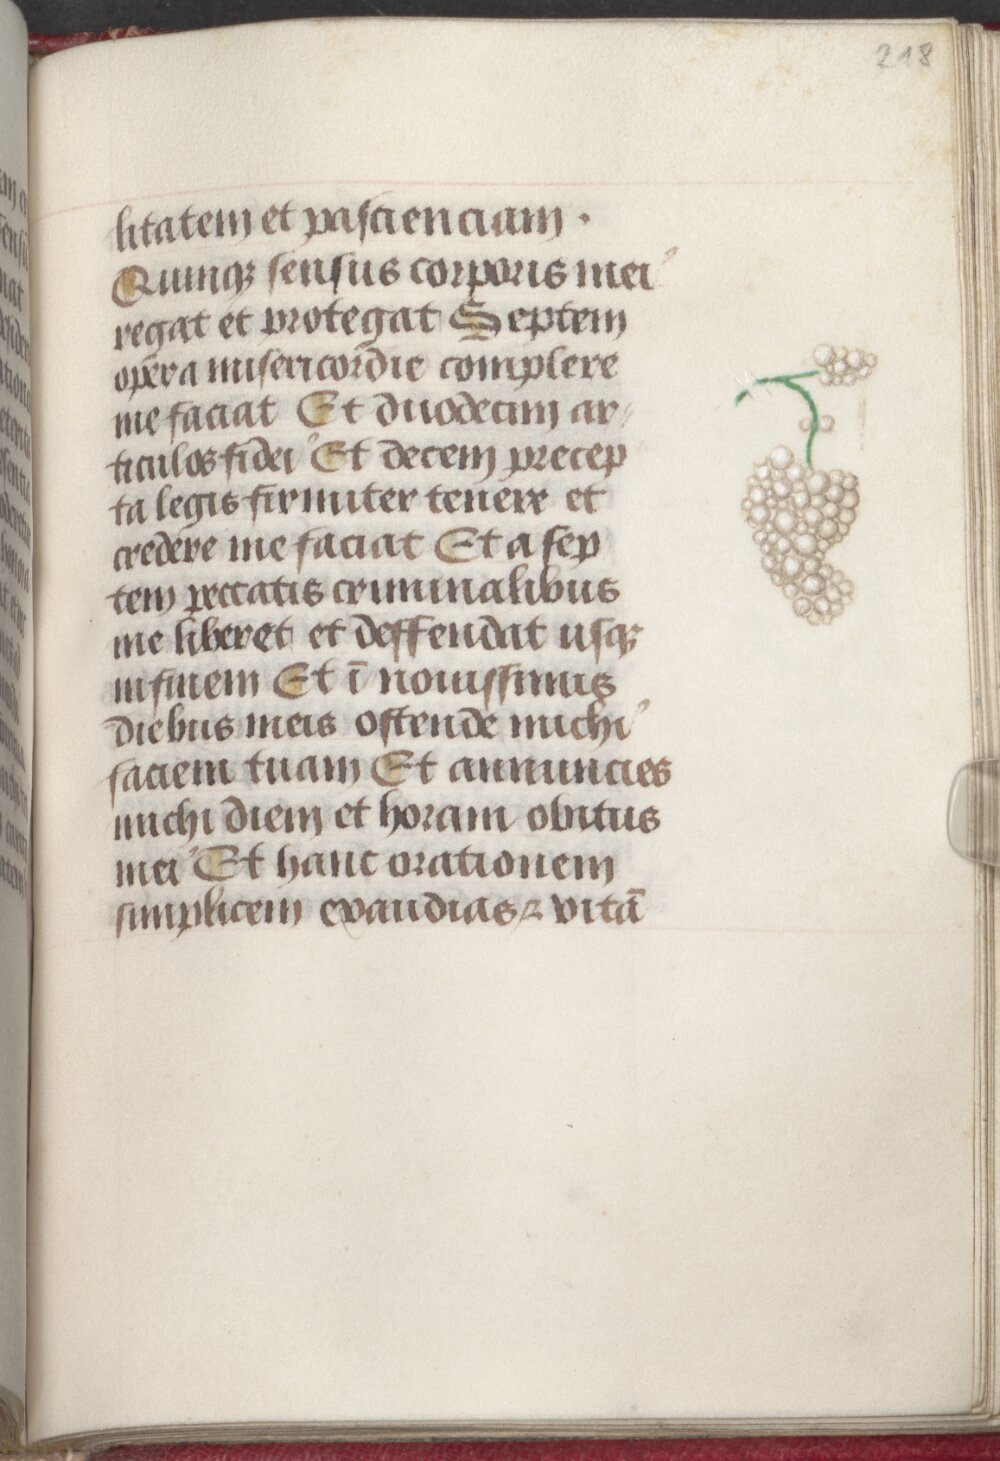 218
litatem et pascienciam ·
Quinqꝫ sensus corporis mei
regat et protegat Septem
opera misericordie complere
me faciat Et duodecim ar
ticulos fidei Et decem precep
ta legis firmiter tenere et
credere me faciat Et a sep
tem peccatis criminalibus
me liberet et deffendat usqꝫ
in finem Et ī nouissimis
diebus meis ostende michi
faciem tuam Et annuncies
michi diem et horam obitus
mei Et hanc orationem
simplicem exaudias ⁊ vitā